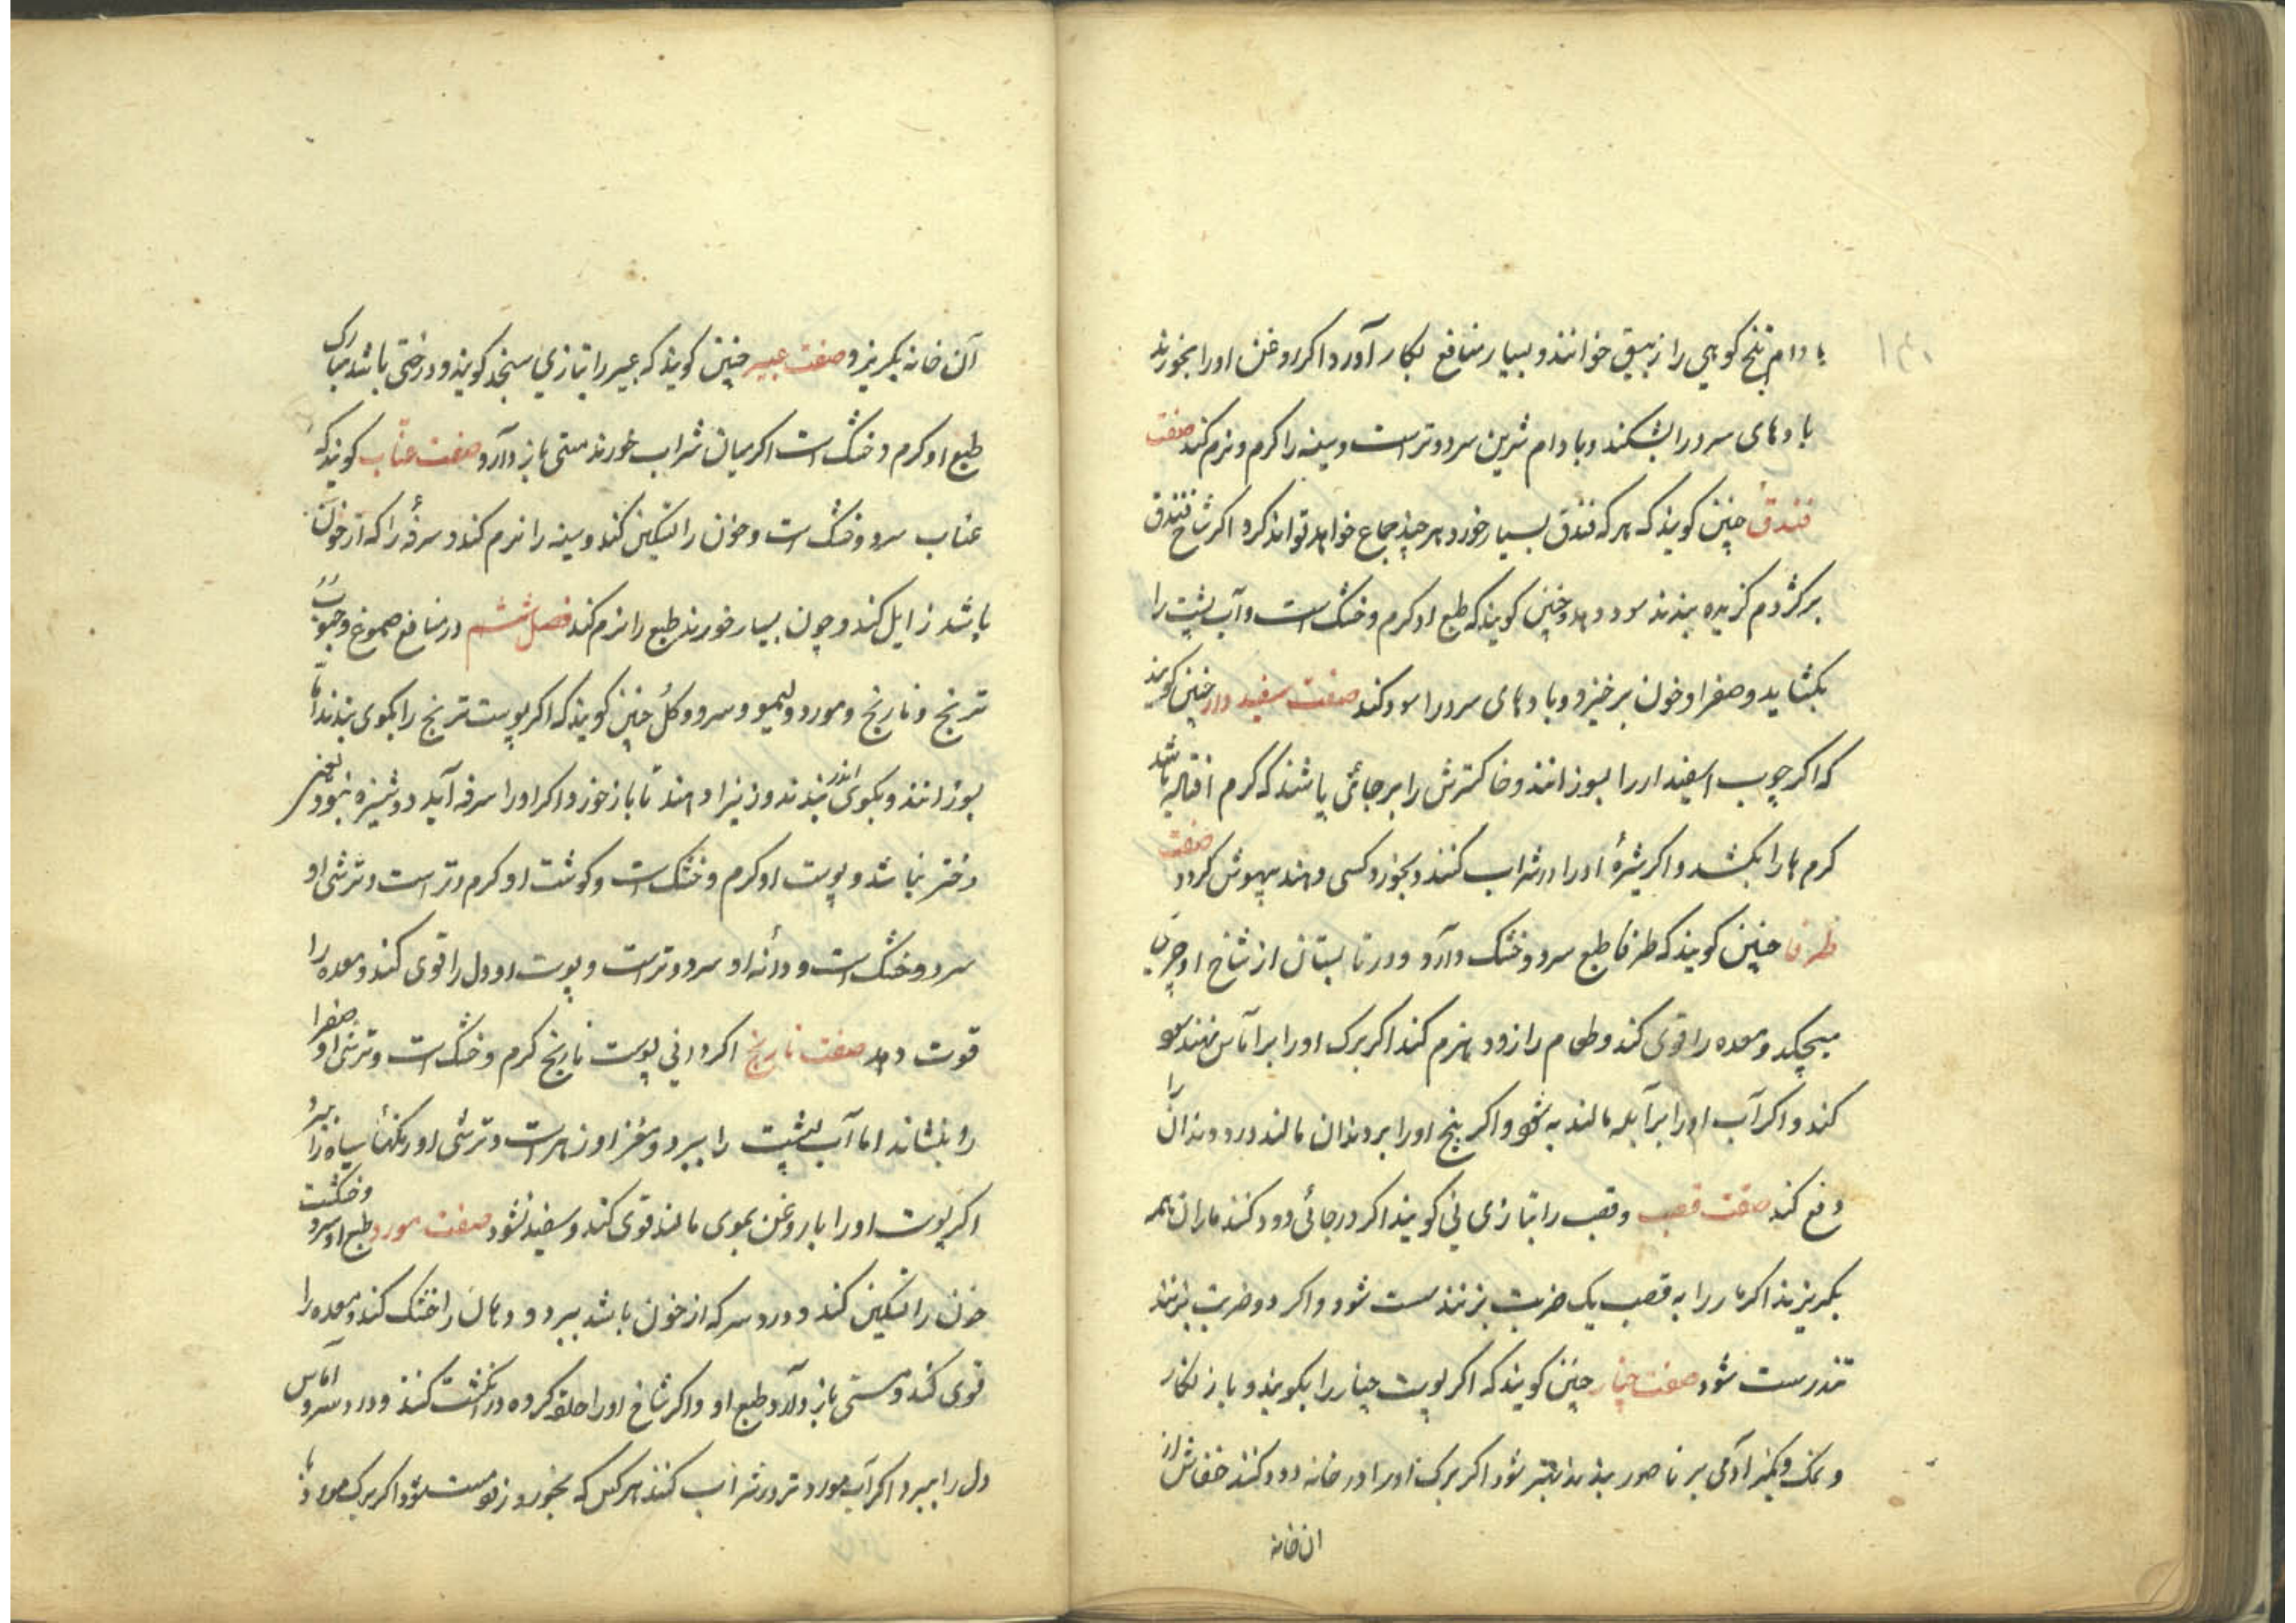 ۱۳۰
بادام تلخ کوهی را زیبق خوانند و بسیار منافع بکار آورد اکر روغن اورا بخورند
بادهای سرد را بشکند و بادام شرین سرد و تر است و سینه را کرم و نرم کند صفت
فندق چنین کویند که هر که فندق بسیار خورد هر چند جماع خواهد تواند کرد اکر شاخ فندق
بر کژدم کزیده بندند سود دهد و چنین کویند که طبع او کرم و خشک است و آب پشت را
بکشاید و صفرا و خون برخیزد و بادهای سرد را سود کند صفت سفیددار چنین کویند
که اکر چوب اسفیددار را بسوزانند و خاکسترش را بر جائی پاشند که کرم افتاده باشد
کرم ها را بکشد و اکر شیرهٔ اورا در شراب کنند و بخورد کسی دهند بیهوش کردد صفت
طرفا چنین کویند که طرفا طبع سرد و خشک دارد و در تابستان از شاخ او چیزی
میچکد و معده را قوی کند و طعام را زود هضم کند اکر برک اورا بر آماس نهند سود
کند و اکر آب اورا بر آبله مالند به شود و اکر بیخ اورا بر دندان مالند درد دندان را
دفع کند صفت قصب و قصب را بتازی نی کویند اکر در جائی دود کنند ماران همه
بکریزند اکر مار را به قصب یک ضربت بزنند سست شود و اکر دو ضربت بزنند
تندرست شود صفت چنار چنین کویند که اکر پوست چنار را بکویند و باز نکار
و نمک و کمیز آدمی بر ناصور بندند بهتر شود اکر برک اورا در خانه دود کنند خفاش از
ان خانه
آن خانه بکریزد صفت عبیر چنین کویند که عبیر را بتازی سنجد کویند و درختی باشد مبارک
طبع او کرم و خشک است اکر میان شراب خورند مستی باز دارد صفت عنّاب کویند که
عناب سرد و خشک است و خون را تسکین کند و سینه را نرم کند و سرفه را که از خون
باشد زایل کند و چون بسیار خورند طبع را نرم کند فصل ششم در منافع صموغ و حبوب
ترنج و نارنج و مورد و لیمو و سرو و کل چنین کویند که اکر پوست ترنج را بکوی بندند تا
بسوزانند و بکوی اندر بندند و زنرا دهند تا باز خورد اکر اورا سرفه آید دوشیزه نبود یعنی
دختر نباشد و پوست او کرم و خشک است و کوشت او کرم و تر است و ترشی او
سرد و خشک است و دانهٔ او سرد و تر است و پوست او دل را قوی کند و معده را
قوت دهد صفت نارنج اکر دانی پوست نارنج کرم و خشک است و ترشی او صفرا
را بنشاند اما آب پشت را ببرد و مغز او زهر است و ترشی او رنکهاء سیاه را ببرد
اکر پوست اورا با روغن بموی مالند قوی کند و سفید نشود صفت مورد طبع او سرد و خشکست
خون را تسکین کند و درد سر که از خون باشد ببرد و دهان را خشک کند و معده را
قوی کند و مستی باز دارد طبع او و اکر شاخ اورا حلقه کرده در انکشت کنند و درد سر و آماس
دل را ببرد اکر آب مورد تر در شراب کنند هر کس که بخورد زود مست شود اکر برک مورد را با